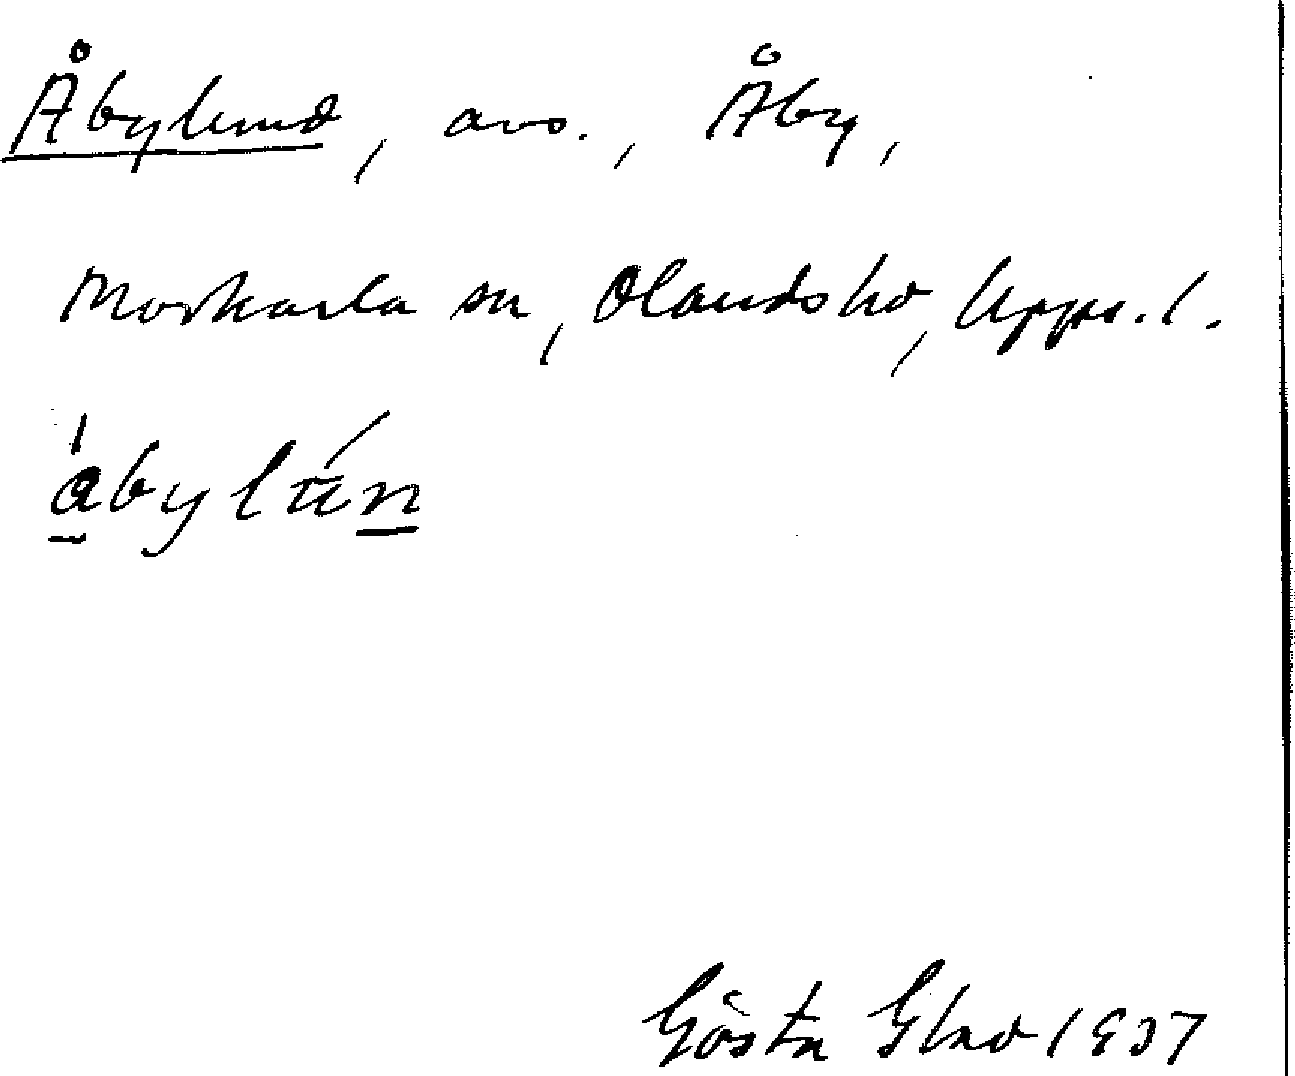 Åbylund, avs., Åby,
Morkarla sn, Olands hd, Upps. l.
Gösta Glad 1937